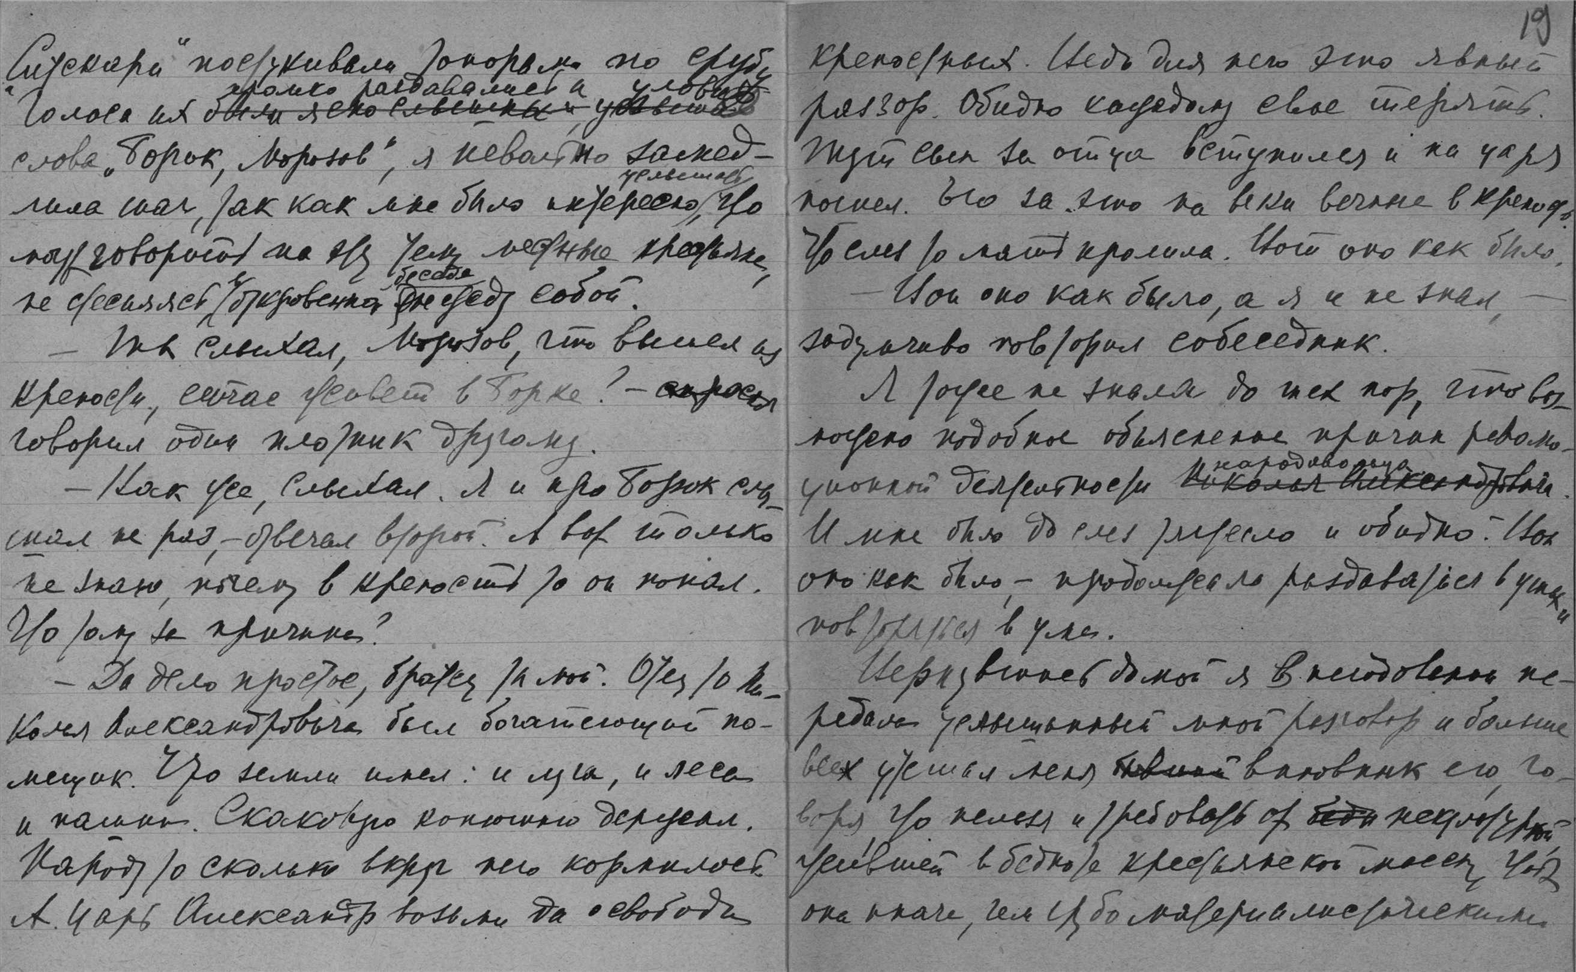 "Сускари" постукивали топорами по срубу
громко раздавались и уловив
Голоса их были ясно слышны, услышав
слова "Борок, Морозов", я невольно замед-
услышать
лила шаг, так как мне было интересно, что
могут говорить на эту тему местные крестьяне,
беседа
не стесняясь, откровенно между собой.
— Ты слыхал, Морозов, что вышел из
крепости, сейчас живет в Борке? – спросил
говорил один плотник другому.
— Как же, слыхал. Я и про Борок слы-
шал не раз, – отвечал второй. А вот только
не знаю, почему в крепость то он попал.
Что тому за причина?
— Да дело простое, братец ты мой. Отец то Ни-
колая Александровича был богатеющий по-
мещик. Что земли имел: и луга, и леса
и пашни. Скаковую конюшню держал.
Народу то сколько вкруг него кормилось.
А царь Александр возьми да освободи
19
крепостных. Ведь для него это явный
раззор. Обидно каждому свое терять.
Тут сын за отца вступился и на царя
пошел. Его за это на веки вечные в крепость.
Что слез то мать пролила. Вот оно как было.
— Вон оно как было, а я и не знал, —
задумчиво повторил собеседник.
Я тоже не знала до тех пор, что воз-
можно подобное объяснение причин револю-
народовольца
ционной деятельности Николая Александровича.
И мне было до слез тяжело и обидно. "Вон
оно как было, – продолжало раздаваться в ушах и
повторяться в уме.
Вернувшись домой я в негодовании пе-
редала услышанный мной разговор и больше
всех утешал меня виновник его, го-
воря, что нельзя и требовать от некультурной
жившей в бедноте крестьянской массы, чтоб
она иначе, чем грубо материалистическими